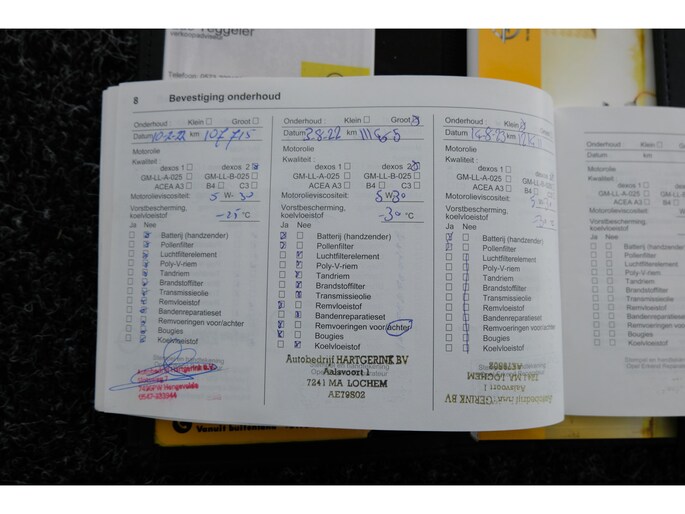 verkoopadviseur
8 Bevestiging onderhoud
Onderhoud : Klein Groot
Datum km 107715
Motorolie
Kwaliteit :
dexos 1 dexos 2
GM-LL-A-025 GM-LL-B-025
ACEA A3 B4 C3
Motorolieviscositeit: 5 W- 30
Vorstbescherming,
koelvloeistof -25 °C
Ja Nee
Batterij (handzender)
Pollenfilter
Luchtfilterelement
Poly-V-riem
Tandriem
Brandstoffilter
Transmissieolie
Remvloeistof
Bandenreparatieset
Remvoeringen voor/achter
Bougies
Koelvloeistof
Onderhoud : Klein Groot
Datum 3-8-22 km
Motorolie
Kwaliteit :
dexos 1 dexos 2
GM-LL-A-025 GM-LL-B-025
ACEA A3 B4 C3
Motorolieviscositeit: 5 W 30
Vorstbescherming,
koelvloeistof -30 °C
Ja Nee
Batterij (handzender)
Pollenfilter
Luchtfilterelement
Poly-V-riem
Tandriem
Brandstoffilter
Transmissieolie
Remvloeistof
Bandenreparatieset
Remvoeringen voor/achter
Bougies
Koelvloeistof
Autobedrijf HARTGERINK BV
Aalsvoort 1
7241 MA LOCHEM
AE79802
Onderhoud : Klein Groot
Datum km
Motorolie
Kwaliteit :
dexos 1 dexos 2
GM-LL-A-025 GM-LL-B-025
ACEA A3 B4 C3
Motorolieviscositeit:
Vorstbescherming,
koelvloeistof °C
Ja Nee
Batterij (handzender)
Pollenfilter
Luchtfilterelement
Poly-V-riem
Tandriem
Brandstoffilter
Transmissieolie
Remvloeistof
Bandenreparatieset
Remvoeringen voor/achter
Bougies
Koelvloeistof
AE79802
7241 MA LOCHEM
Aalsvoort 1
Autobedrijf GERINK BV
Onderhoud :
Datum km
Motorolie
Kwaliteit :
dexos 1
GM-LL-A-025
ACEA A3
Motorolieviscositeit:
Vorstbescherming,
koelvloeistof
Ja Nee
Batterij (handzender)
Pollenfilter
Luchtfilterelement
Poly-V-riem
Tandriem
Brandstoffilter
Transmissieolie
Remvloeistof
Bandenreparatieset
Remvoeringen voor/
Bougies
Koelvloeistof
Vanuit buitenland